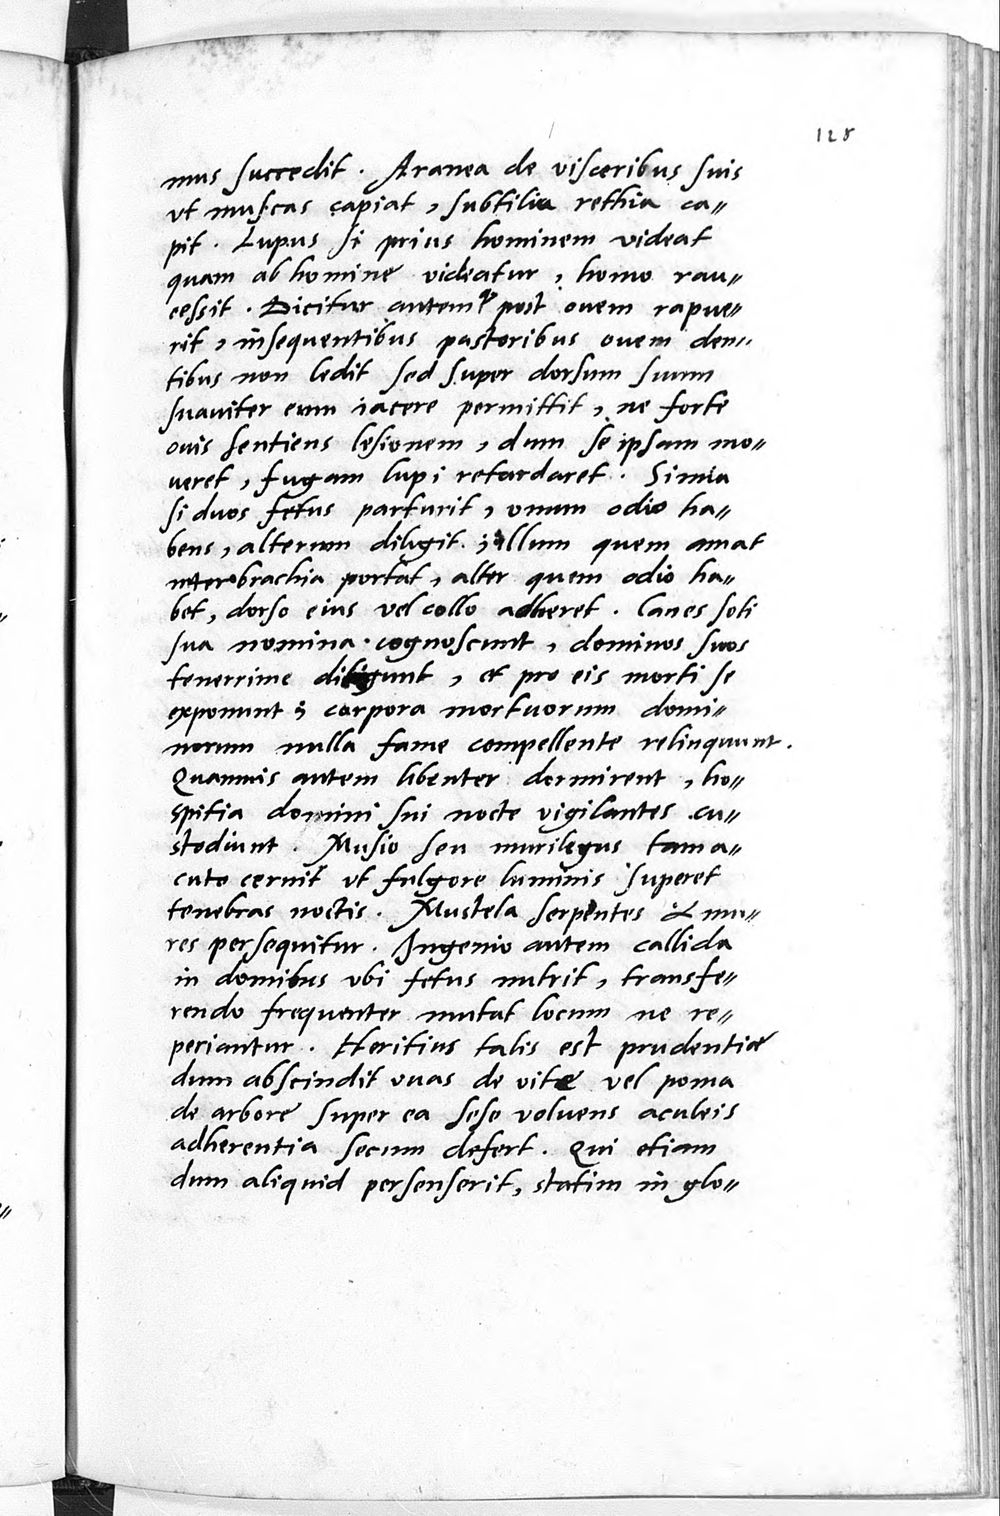 128
mus succedit. Aranea de visceribus suis
vt muscas capiat, subtilia rethia ca=
pit. Lupus si prius hominem videat
quam ab homine videatur, homo rau=
cessit. Dicitur autem post ouem rapue=
rit, insequentibus pastoribus ouem den=
tibus non ledit sed super dorsum suum
suauiter eum iacere permittit, ne forte
ouis sentiens lesionem, dum se ipsam mo=
ueret, fugam lupi retardaret. Simia
si duos fetus parturit, vnum odio ha=
bens, alterum diligit. illum quem amat
inter brachia portat, alter quem odio ha=
bet, dorso eius vel collo adheret. Canes soli
sua nomina cognoscunt, dominos suos
tenerrime diligunt, et pro eis morti se
exponunt; corpora mortuorum domi=
norum nulla fame compellente relinquunt.
Quamuis autem libenter dormirent, ho=
spitia domini sui nocte vigilantes cu=
stodiunt. Musio seu murilegus tam a=
cuto cernit vt fulgore luminis superet
tenebras noctis. Mustela serpentes & mu=
res persequitur. Ingenio autem callida
in domibus vbi fetus nutrit, transfe=
rendo frequenter mutat locum ne re=
periantur. Heritius talis est prudentiæ
dum abscindit vuas de vite vel poma
de arbore super ea sese voluens aculeis
adherentia secum defert. Qui etiam
dum aliquid persenserit, statim in glo=